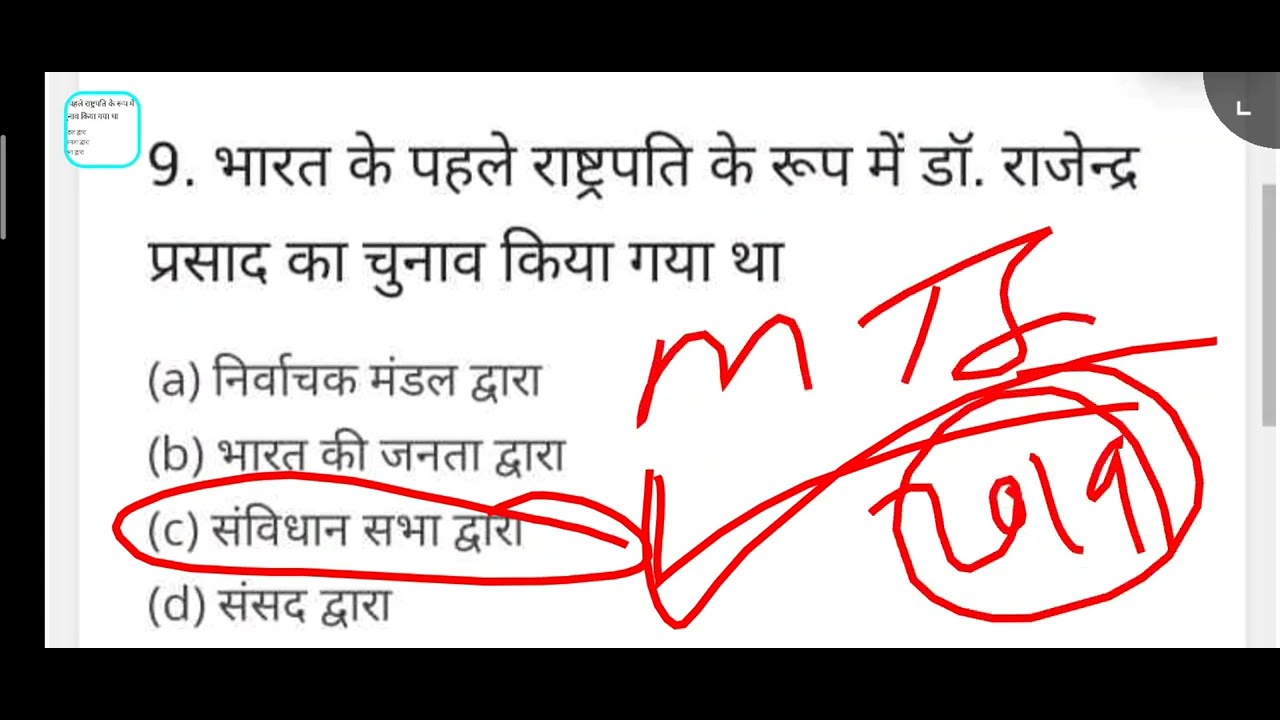 9. भारत के पहले राष्ट्रपति के रूप में डॉ. राजेन्द्र
प्रसाद का चुनाव किया गया था
(a) निर्वाचक मंडल द्वारा
(b) भारत की जनता द्वारा
(c) संविधान सभा द्वारा
(d) संसद द्वारा